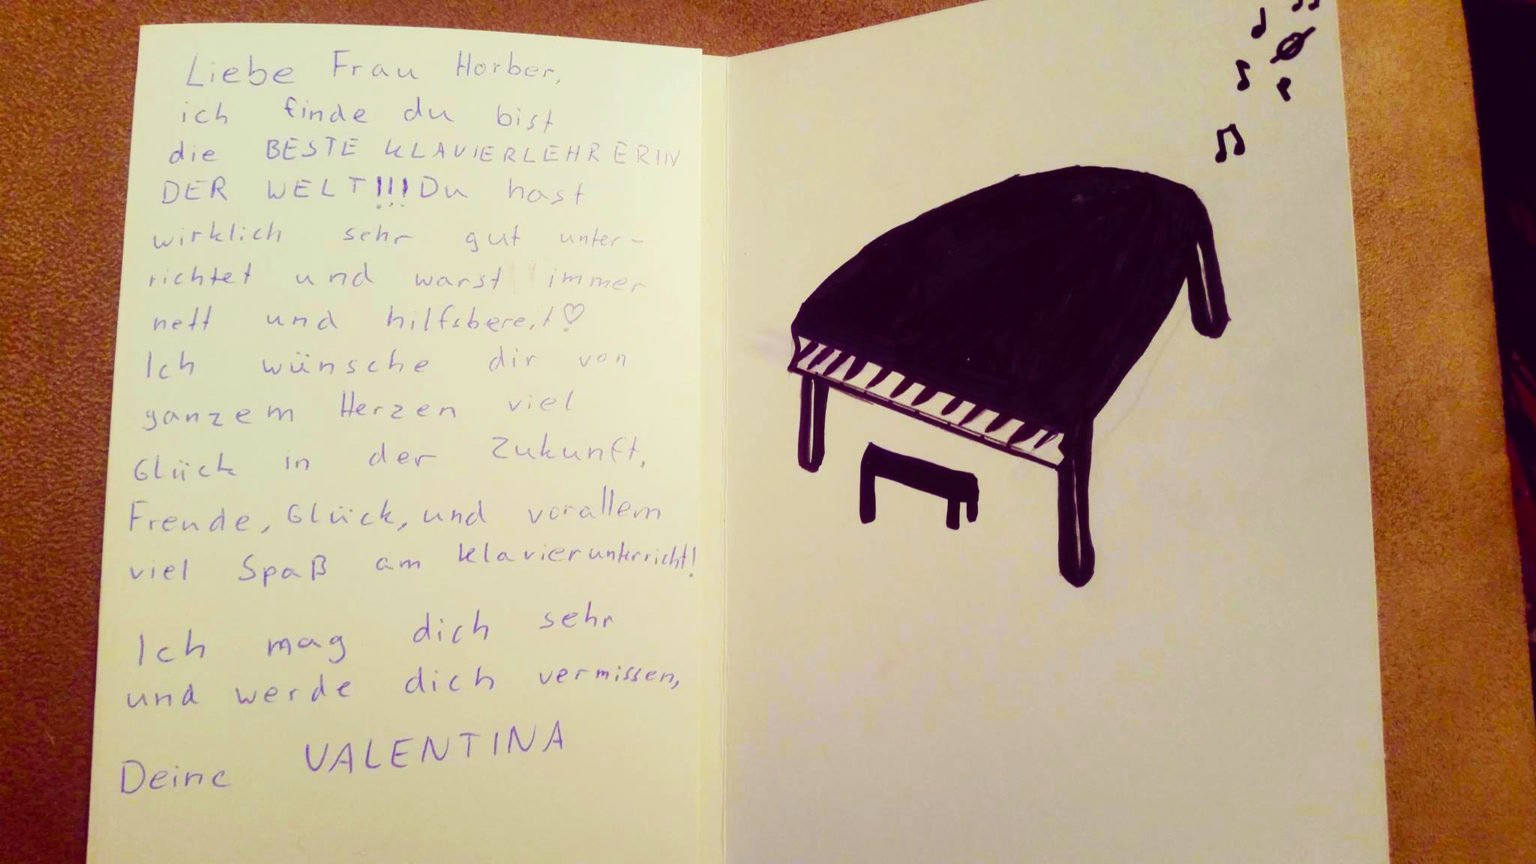 Liebe Frau Horber,
ich finde du bist
die BESTE KLAVIERLEHRERIN
DER WELT!!! Du hast
wirklich sehr gut unter-
richtet und warst immer
nett und hilfsbereit!♡
Ich wünsche dir von
ganzem Herzen viel
Glück in der Zukunft,
Freude, Glück, und vorallem
viel Spaß am Klavierunterricht!
Ich mag dich sehr
und werde dich vermissen,
Deine VALENTINA